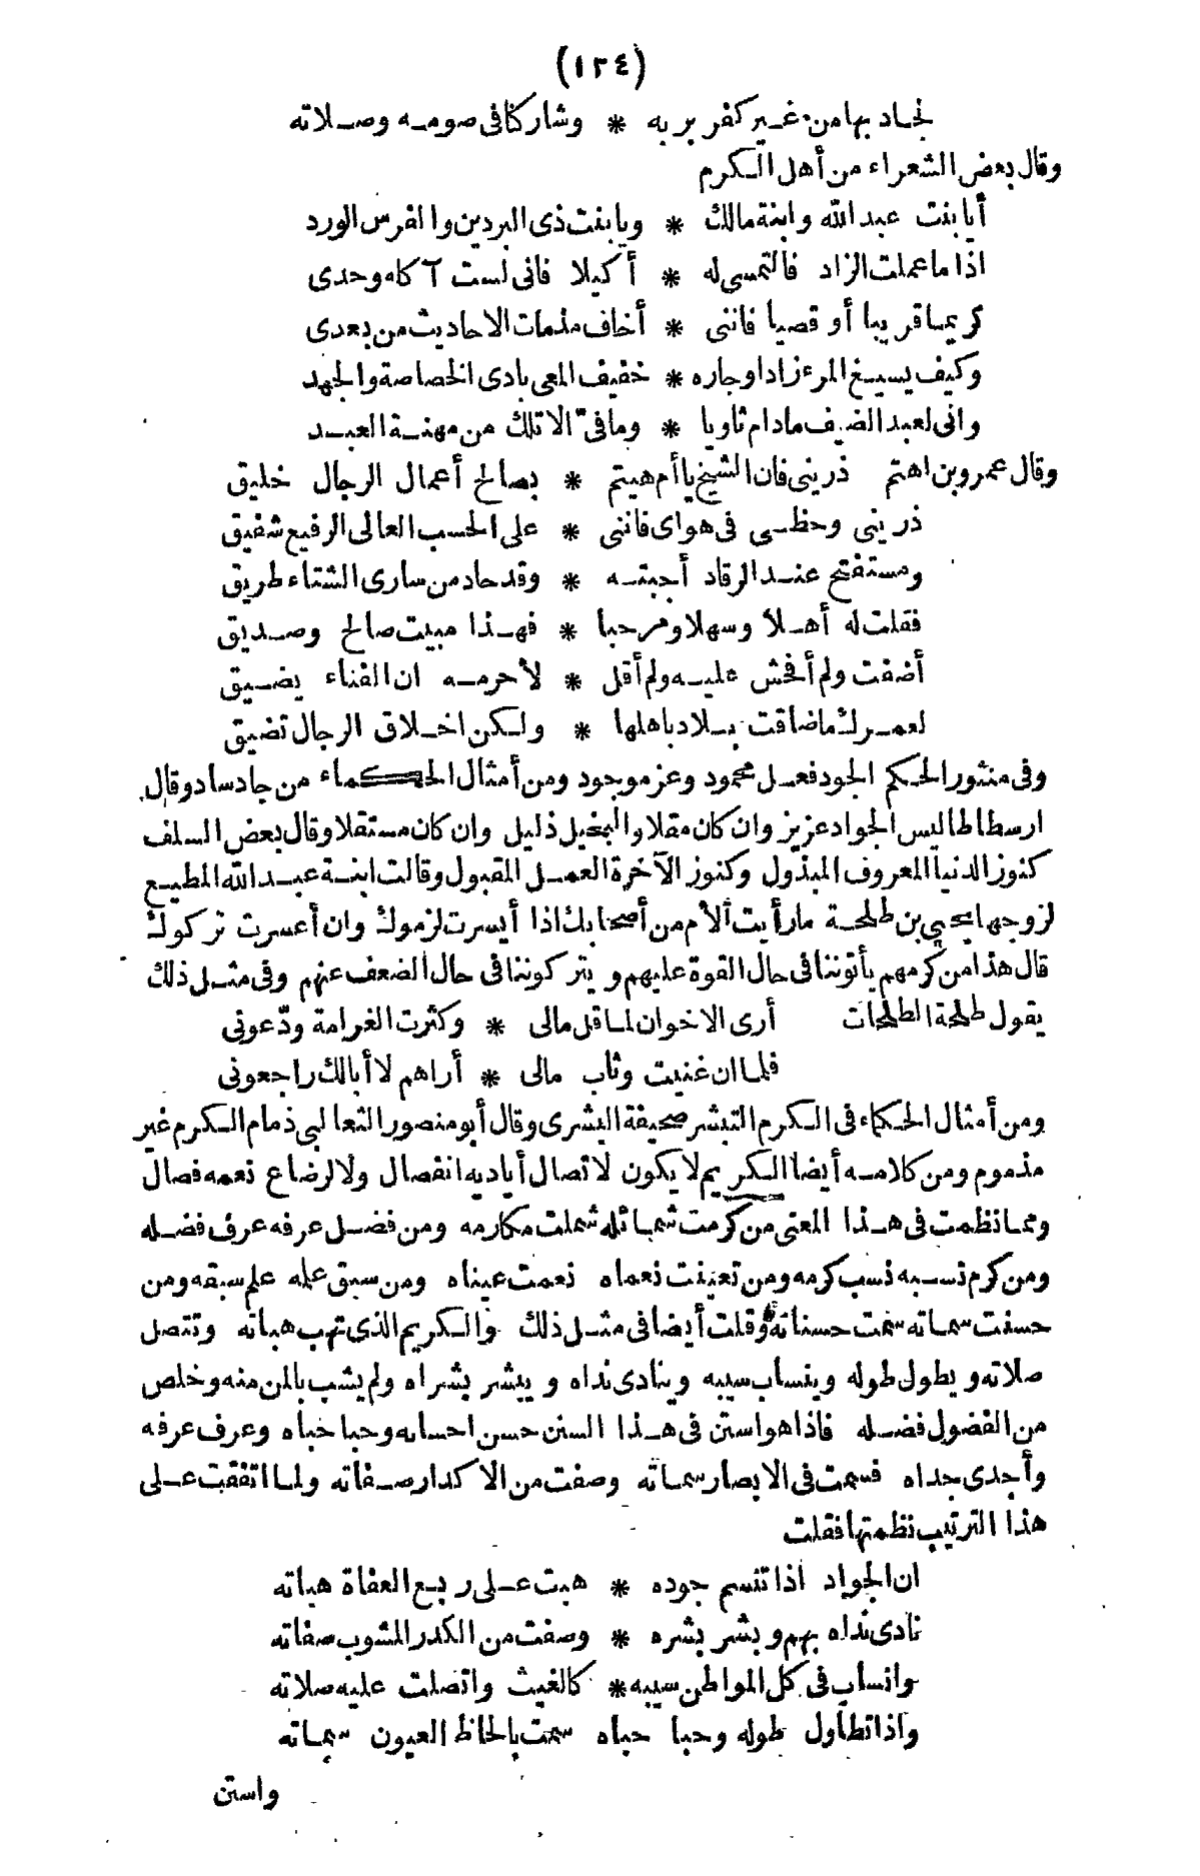 (١٣٤)
لجاد بها من غير كفر بربه * وشاركنا فى صومه وصلاته
وقال بعض الشعراء من أهل الكرم
أيا بنت عبد الله وابنة مالك * ويا بنت ذى البردين والفرس الورد
اذا ما عملت الزاد فالتمسى له * أكيلا فانى لست آكله وحدى
كريما قريبا أو قصيا فاننى * أخاف مذمات الاحاديث من بعدى
وكيف يسيغ المرء زادا وجاره * خفيف المعى بادى الخصاصة والجهد
وانى لعبد الضيف ما دام ثاويا * وما فىّ الا تلك من مهنة العبد
وقال عمرو بن اهتم ذرينى فان الشيخ يا أم هيتم * بصالح أعمال الرجال خليق
ذرينى وحظى فى هواى فاننى * على الحسب العالى الرفيع شفيق
ومستفتح عند الرقاد أجبته * وقد حاد من سارى الشتاء طريق
فقلت له أهلا وسهلا ومرحبا * فهذا مبيت صالح وصديق
أضفت ولم أفحش عليه ولم أقل * لأحرمه ان الفناء يضيق
لعمرك ما ضاقت بلاد باهلها * ولكن اخلاق الرجال تضيق
وفى منثور الحكم الجود فعل محمود وعز موجود ومن أمثال الحكماء من جاد ساد وقال
ارسطاطاليس الجواد عزيز وان كان مقلا والبخيل ذليل وان كان مستقلا وقال بعض السلف
كنوز الدنيا المعروف المبذول وكنوز الآخرة العمل المقبول وقالت ابنة عبد الله المطيع
لزوجها يحيى بن طلحة ما رأيت ألأم من أصحابك اذا أيسرت لزموك وان أعسرت تركوك
قال هذا من كرمهم يأتوننا فى حال القوة عليهم ويتركوننا فى حال الضعف عنهم وفى مثل ذلك
يقول طلحة الطلحات أرى الاخوان لما قل مالى * وكثرت الغرامة ودّعونى
فلما ان غنيت وثاب مالى * أراهم لا أبالك راجعونى
ومن أمثال الحكماء فى الكرم التبشر صحيفة البشرى وقال أبو منصور الثعالبى ذمام الكرم غير
مذموم ومن كلامه أيضا الكريم لا يكون لاتصال أياديه انفصال ولا لرضاع نعمه فصال
ومما نظمت فى هذا المعنى من كرمت شمائله شملت مكارمه ومن فضل عرفه عرف فضله
ومن كرم نسبه نسب كرمه ومن تعينت نعماه نعمت عيناه ومن سبق علمه علم سبقه ومن
حسنت سماته سمت حسناته وقلت أيضا فى مثل ذلك والكريم الذى تهب هباته وتتصل
صلاته ويطول طوله وينساب سيبه وينادى نداه ويبشر بشراه ولم يشب بالمن منه وخلص
من الفضول فضله فاذا هو استن فى هذا السنن حسن احسانه وحبا حباه وعرف عرفه
وأجدى جداه فسمت فى الابصار سماته وصفت من الاكدار صفاته ولما اتفقت على
هذا الترتيب نظمتها فقلت
ان الجواد اذا تنسم جوده * هبت على ربع العفاة هباته
نادى نداه بهم وبشر بشره * وصفت من الكدر المشوب صفاته
وانساب فى كل المواطن سيبه * كالغيث واتصلت عليه صلاته
واذا تطاول طوله وحبا حباه سمت بالحاظ العيون سماته
واستن